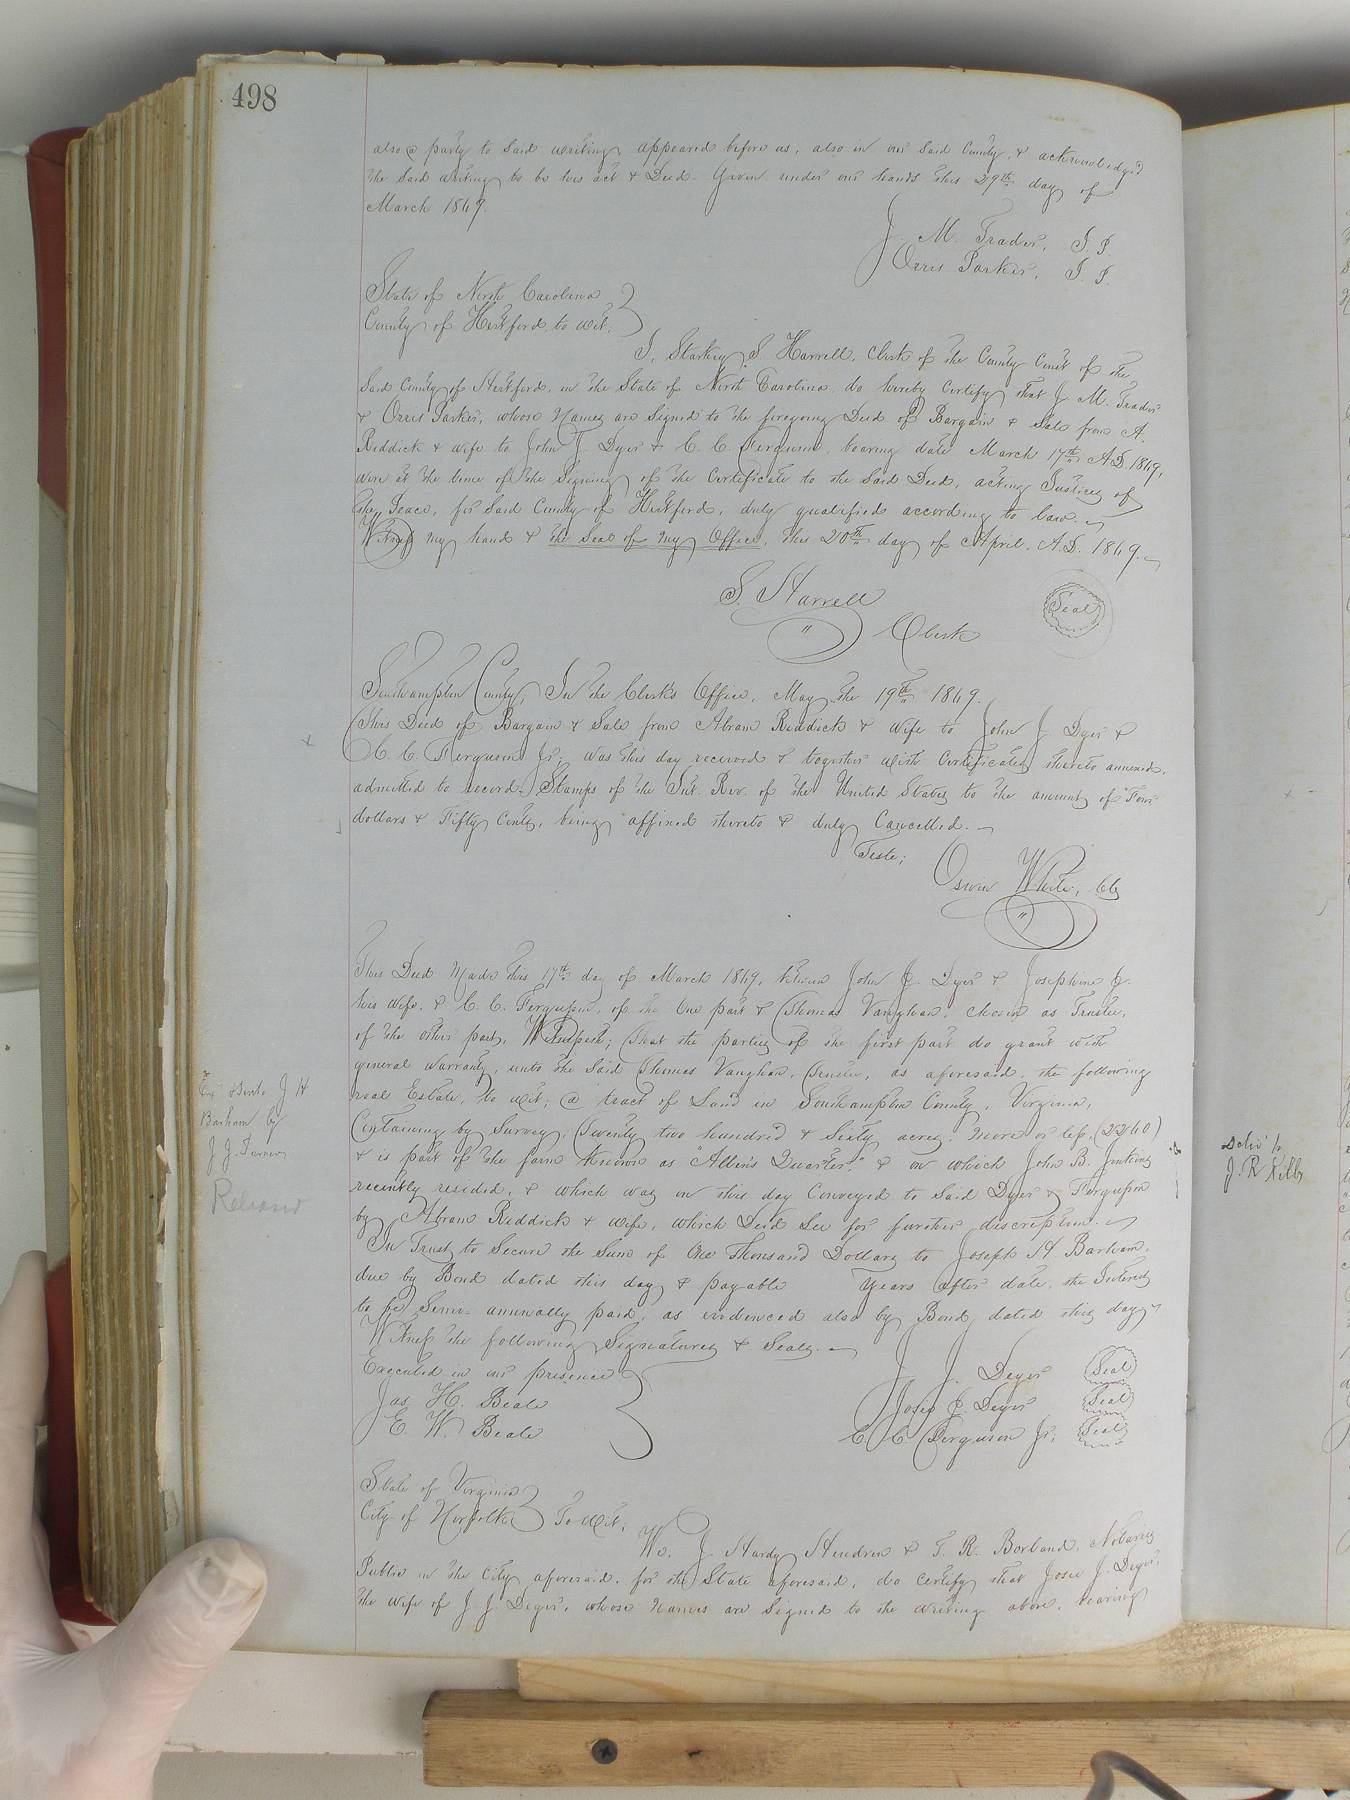 498
also a party to said writing, appeared before us, also in our said County, & acknowledged
the said writing to be his act & Deed. Given under our hands this 29th day of
March 1869.
J. M. Trader, J. P.
Orris Parker, J. P.
State of North Carolina
County of Hertford, to wit;
I, Starkey S. Harrell, Clerk of the County Court of the
said County of Hertford, in the State of North Carolina, do hereby certify that J. M. Trader
& Orris Parker, whose names are signed to the foregoing Deed of Bargain & Sale from A.
Riddick & wife to John J. Dyer & C. C. Ferguson, bearing date March 17th A.D. 1869,
were at the time of the signing of the Certificate to the said Deed, acting Justices of
the Peace, for said County of Hertford, duly qualified according to law.
Witness my hand & the Seal of my Office, this 20th day of April, A.D. 1869.
S. Harrell
Clerk
Seal
Southampton County, In the Clerk's Office, May the 19th 1869.
This Deed of Bargain & Sale from Abram Riddick & wife to John J. Dyer &
C. C. Ferguson Jr; was this day received & together with Certificates thereto annexed,
admitted to record. Stamps of the Int. Rev. of the United States to the amount of Four
dollars & Fifty Cents, being affixed thereto & duly Cancelled.
Teste;
Oswin White, Clk
This Deed Made this 17th day of March 1869, between John J. Dyer & Josephine J.
his wife, & C. C. Ferguson, of the one part & Thomas Vaughan, chosen as Trustee,
of the other part, Witnesseth; That the parties of the first part do grant with
general warranty, unto the said Thomas Vaughan, Trustee, as aforesaid, the following
real Estate, to wit; a tract of Land in Southampton County, Virginia,
Containing by Survey, Twenty two hundred & Sixty acres, more or less, (2260)
& is part of the farm Known as "Allen's Quarter," & on which John B. Jenkins
recently resided, & which was on this day Conveyed to said Dyer & Ferguson
by Abram Riddick & wife, which Deed See for further description.
In Trust to Secure the Sum of One Thousand Dollars to Joseph H. Barham,
due by Bond dated this day & payable years after date, the Interest
to be Semi-annually paid, as evidenced also by Bond dated this day
Witness the following Signatures & Seals.
Executed in our presence
J. J. Deyer Seal
Jas. H. Beale
Josie J. Deyer Seal
E. W. Beale
C. C. Ferguson Jr; Seal
State of Virginia
City of Norfolk To wit,
We, J. Hardy Hendren & T. R. Borland, Notaries
Public in the City aforesaid, for the State aforesaid, do certify that Josie J. Deyer,
the wife of J. J. Deyer, whose names are signed to the writing above, bearing
J H
Barham by
J. J. Turner
Released
Deliv'd to
J. R. Kilby